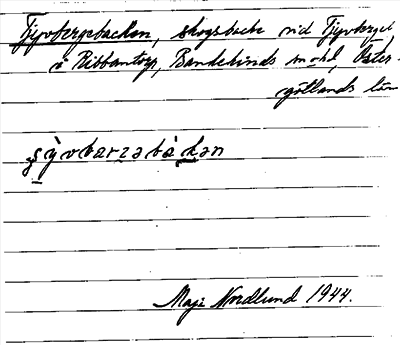 Tjyvbergsbacken, skogsbacke vid Tjyvberget
i Ribbantorp, Bankekinds m o hd, Öster-
götlands län
ʂỳvbærzəbàkən
Maja Nordlund 1944.